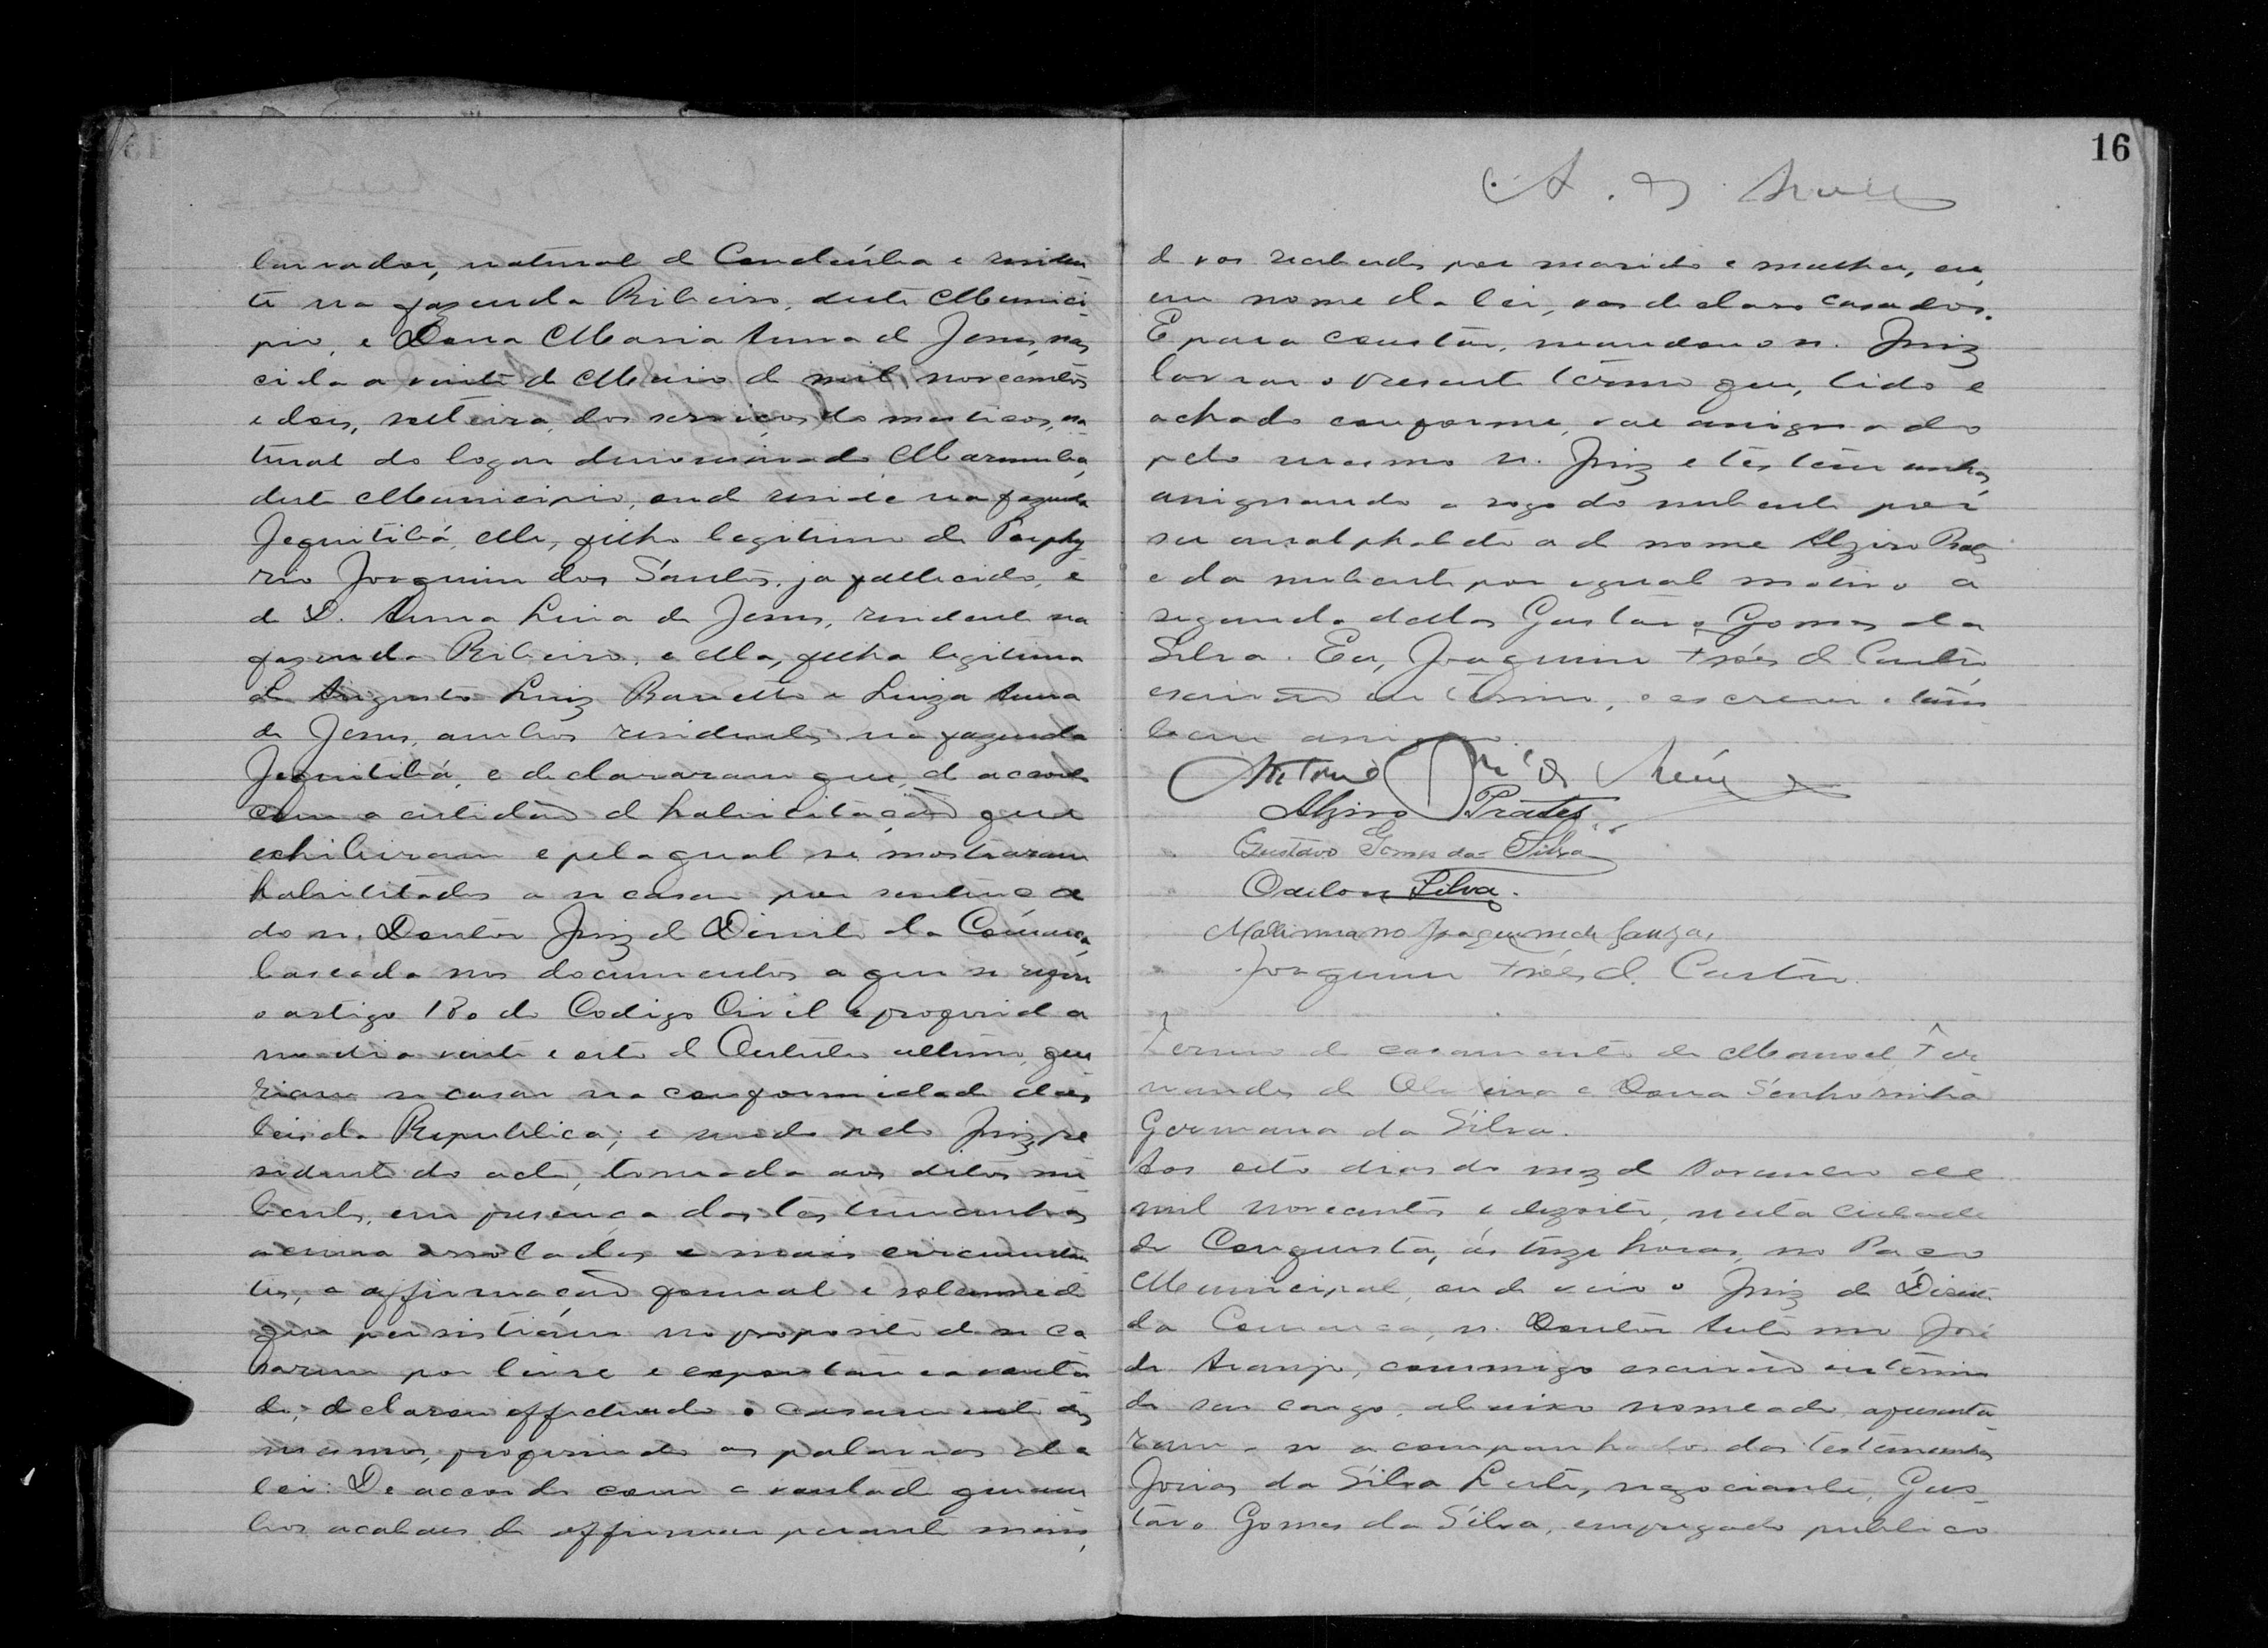 lavrador, natural de Condeúba e residen
te na fazenda Ribeiro, deste Munici
pio, e Dona Maria Anna de Jesus, nas
cida a vinte de Maio de mil novecentos
e dois, solteira, dos serviços domesticos, na
tural do logar denominado
deste Municipio, onde reside na fazenda
Jequitibá, elle, filho legitimo de Porphy
rio Joaquim dos Santos, ja fallecido, e
de D. Anna Luia de Jesus, residente na
fazenda Ribeiro, e ella, filha legitima
de Augusto Luiz Barretto e Luiza Anna
de Jesus, ambos residentes na fazenda
Jequitibá, e declararam que, de accordo
com a certidão de habilitação que
exhibiram e pela qual se mostraram
habilitados a se casar por sentença
do sr. Doutor Juiz de Direito da Comarca,
baseada nos documentos a que se refere
o artigo 180 do Codigo Civil e proferida
no dia vinte e oito de Outubro ultimo, que
riam se casar na conformidade das
leis da Republica; e sendo pelo Juiz, pre
sidente do acto, tomada aos ditos nu
bentes, em presença das testemunhas
acima arroladas e mais circumstan
tes, a affirmação formal e solemne de
que persistiam no proposito de se ca
sarem por livre e expontanea vonta
de, declarou effectuado o casamento dos
mesmos, proferindo as palavras da
lei: De accordo com a vontade que am
bos acabaes de affirmar perante mim,
16
d vos receberdes por marido e mulher, eu,
em nome da lei, vos declaro casados.
E para constar, mandou o sr. Juiz
lavrar o presente termo que, lido e
achado conforme, vae assignado
pelo mesmo sr. Juiz e testemunhas,
assignando a rogo do nubente por
ser analphabeto a de nome Alziro Prates
e da nubente por egual motivo a
segunda dellas Gustavo Gomes da
Silva. Eu, Joaquim Fróes de Castro,
escrivão interino, o escrevi e tam
bem assigno.
Antonio José de Araujo
Alziro Prates
Gustavo Gomes da Silva
Odilon Silva.
Joaquim de Souza,
Joaquim Fróes d. Castro.
Termo de casamento de Manoel Fer
nandes de Oliveira e Dona Senhorinha
Germana da Silva.
Aos oito dias do mez de Novembro de
mil novecentos e dezoito, nesta cidade
de Conquista, ás treze horas, no Paço
Municipal, onde veio o Juiz de Direito
da Comarca, sr. Doutor Antonio José
de Araujo, commigo escrivão interino
de seu cargo, abaixo nomeado, apresenta
ram-se acompanhados das testemunhas
Jovias da Silva Leite, negociante, Gus
tavo Gomes da Silva, empregado publico